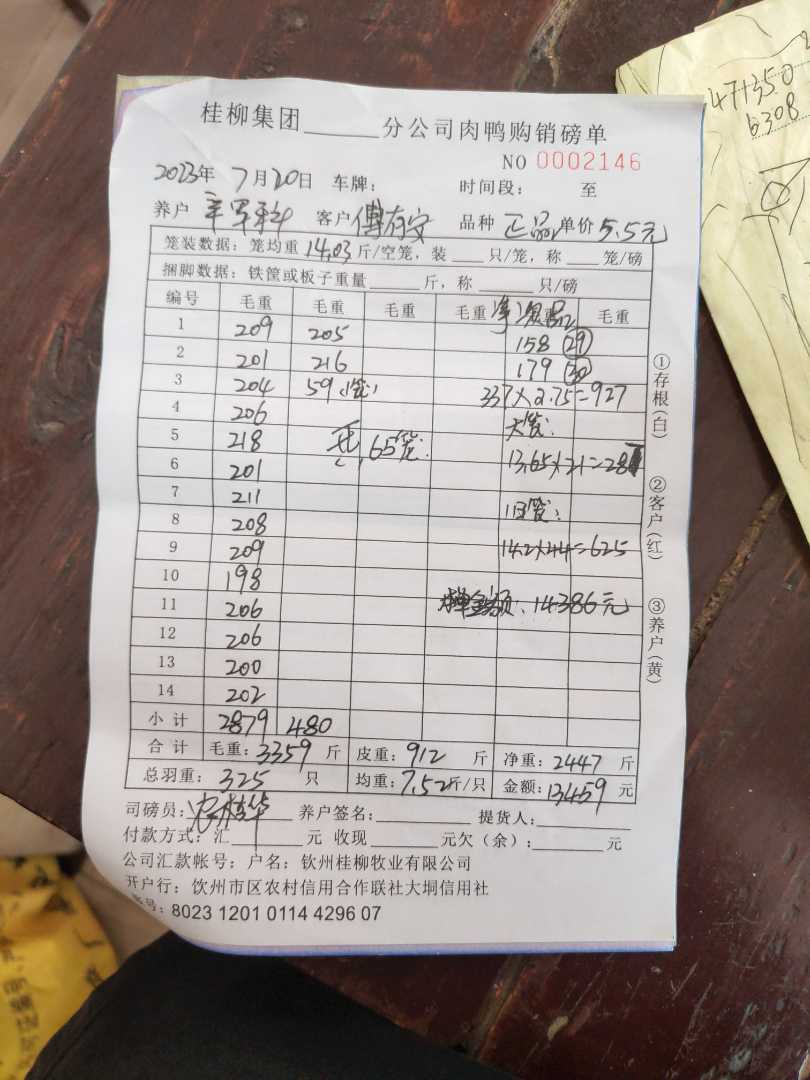 桂柳集团______分公司肉鸭购销磅单
NO 0002146
2023年7月20日 车牌: 时间段: 至
养户 辛军科 客户 傅有安 品种 正品 单价 5.5元
笼装数据: 笼均重 14.03 斤/空笼, 装 ___ 只/笼, 称 ___ 笼/磅
捆脚数据: 铁筐或板子重量 ______ 斤, 称 ______ 只/磅
编号 毛重 毛重 毛重 毛重 净 次品 毛重
1 209 205 158 (29)
2 201 216 179 (30)
3 204 59 (1笼) 337×2.75=927
4 206 大笼:
5 218 65笼
6 201 13.65×21=287
7 211 旧笼:
8 208
9 209 14.2×44=625
10 198
11 206 金额: 14386元
12 206
13 200
14 202
小计 2879 480
合计 毛重: 3359 斤 皮重: 912 斤 净重: 2447 斤
总羽重: 325 只 均重: 7.52斤/只 金额: 13459 元
司磅员: 养户签名: 提货人:
付款方式: 汇______元 收现______元欠(余): ______元
公司汇款帐号: 户名: 钦州桂柳牧业有限公司
开户行: 饮州市区农村信用合作联社大垌信用社
号: 8023 1201 0114 4296 07
①存根(白) ②客户(红) ③养户(黄)
471350
6308